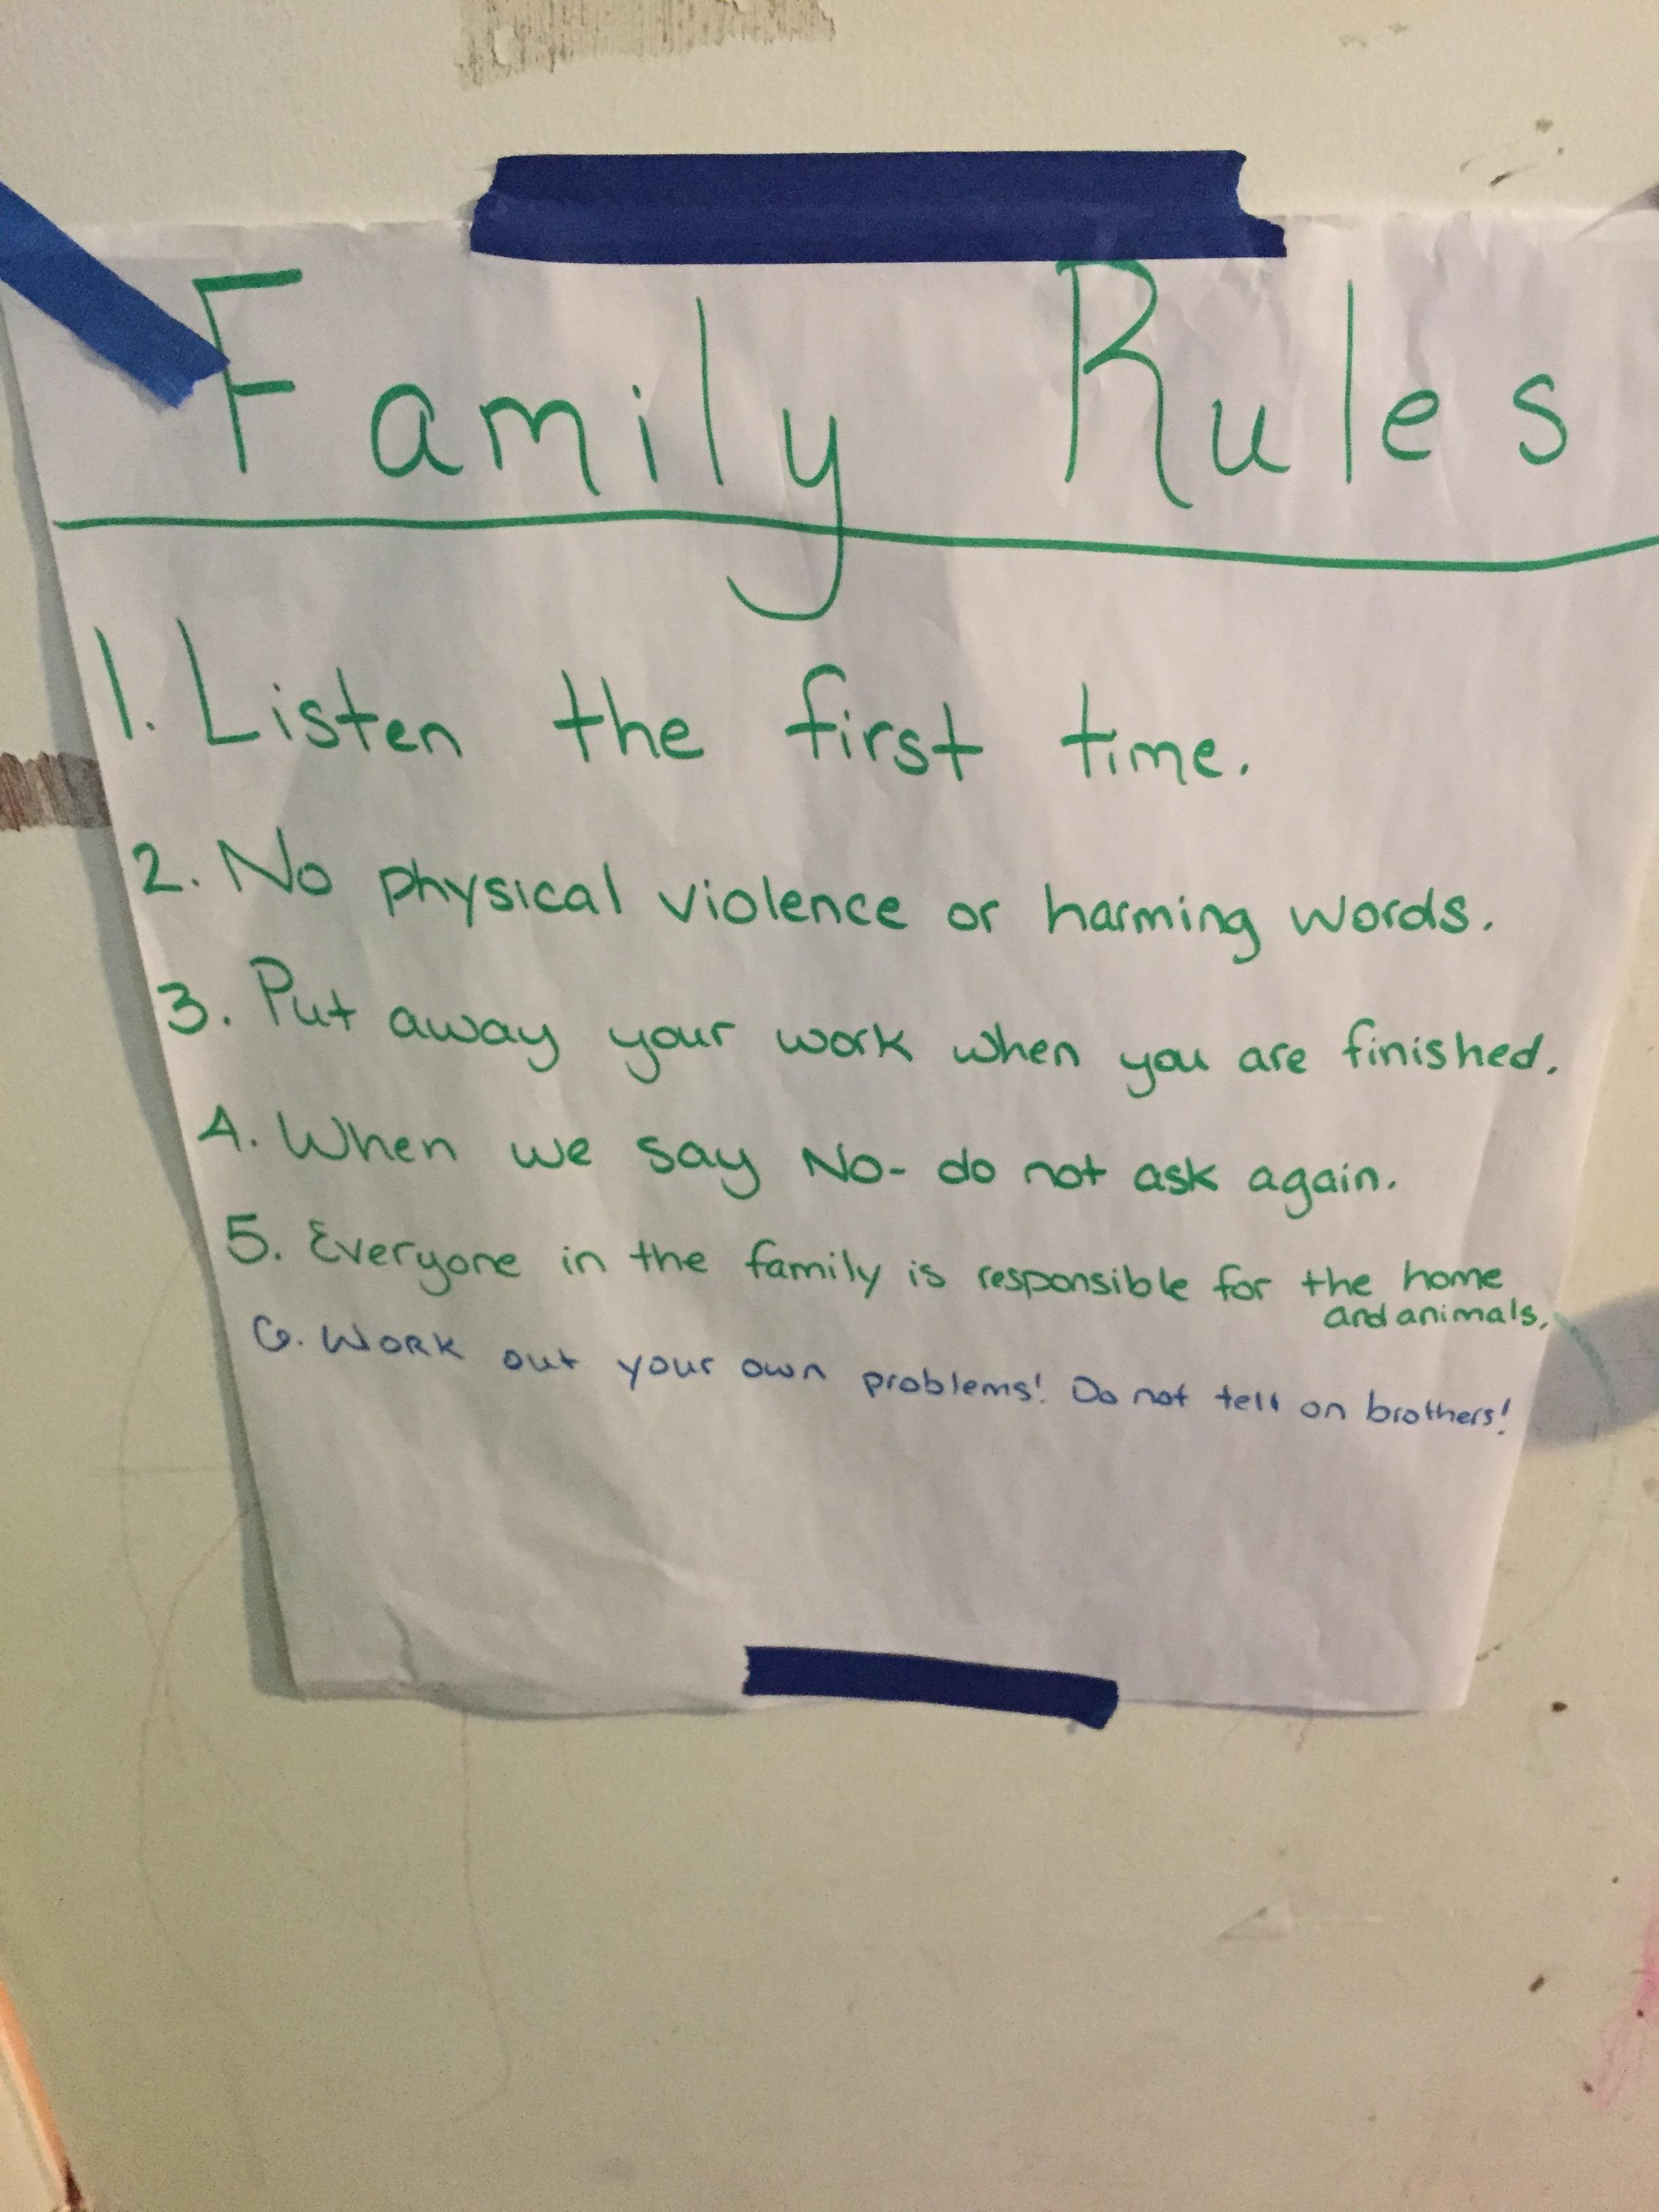 Family Rules
1. Listen the first time.
2. No physical violence or harming words.
3. Put away your work when you are finished.
4. When we say No- do not ask again.
5. Everyone in the family is responsible for the home
and animals.
6. Work out your own problems! Do not tell on brothers!